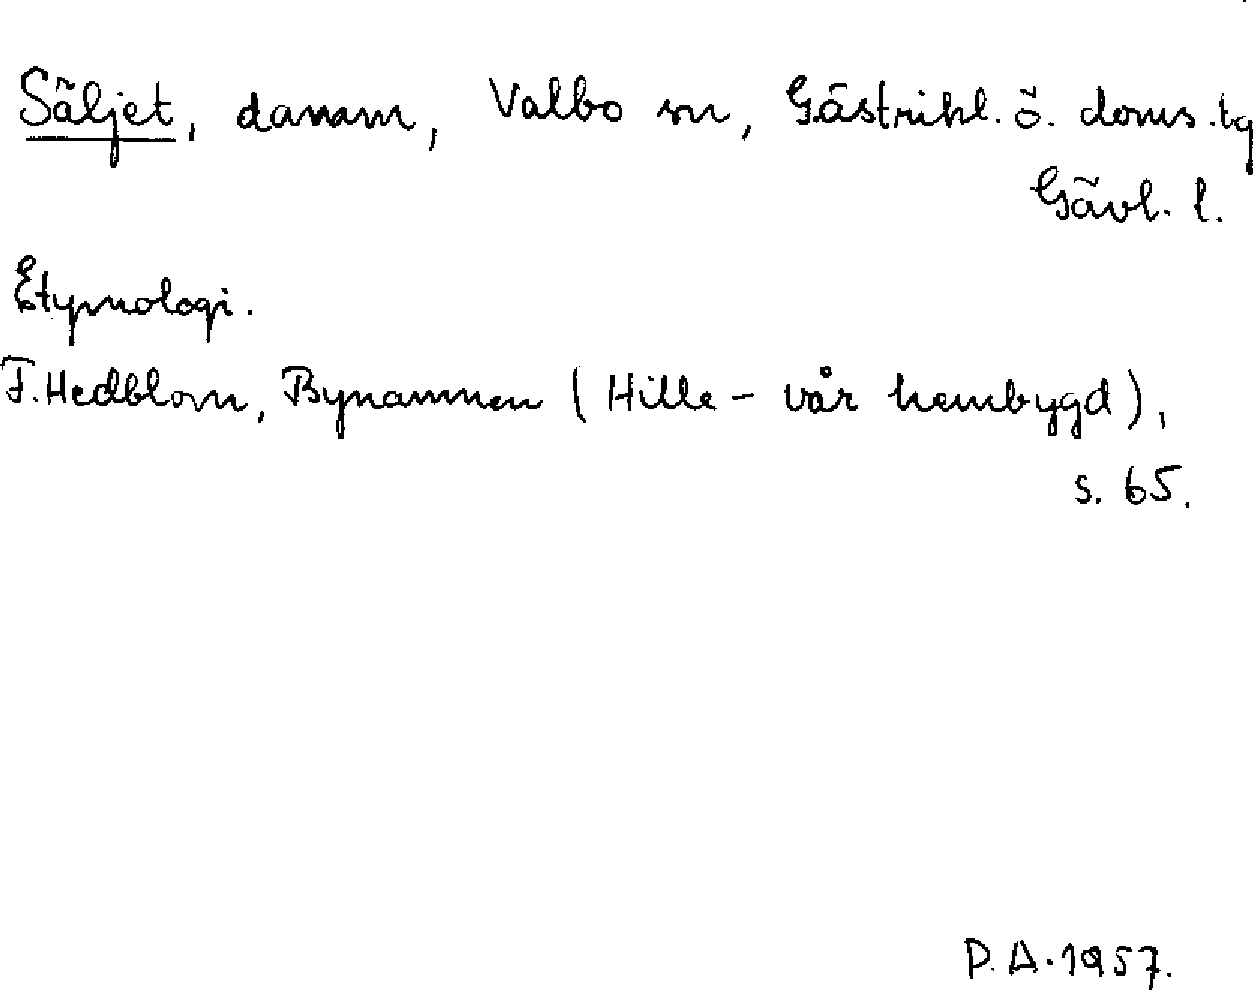 Säljet, danamn, Valbo sn, Gästrikl. ö. doms. tg
Gävl. l.
Etymologi.
F. Hedblom, Bynamnen (Hille - vår hembygd),
s. 65.
P. A. 1957.